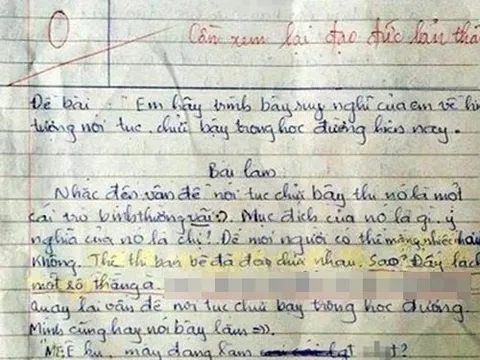 0
Cần xem lại đạo đức bản thâ
Đề bài: "Em hãy trình bày suy nghĩ của em về hiệ
tượng nói tục, chửi bậy trong học đường hiện nay.
Bài làm
Nhắc đến vấn đề nói tục chửi bậy thì nó là một
cái trò bình thường vãi :). Mục đích của nó là gì, ý
nghĩa của nó là chi? Để mọi người có thể mắng nhiếc nhau
Không. Thế thì bạn bè đã chửi nhau. Sao? Đấy là cách
một số thằng a
Quay lại vấn đề nói tục chửi bậy trong học đường.
Mình cũng hay nói bậy lắm =)).
ku, mày đang làm ?